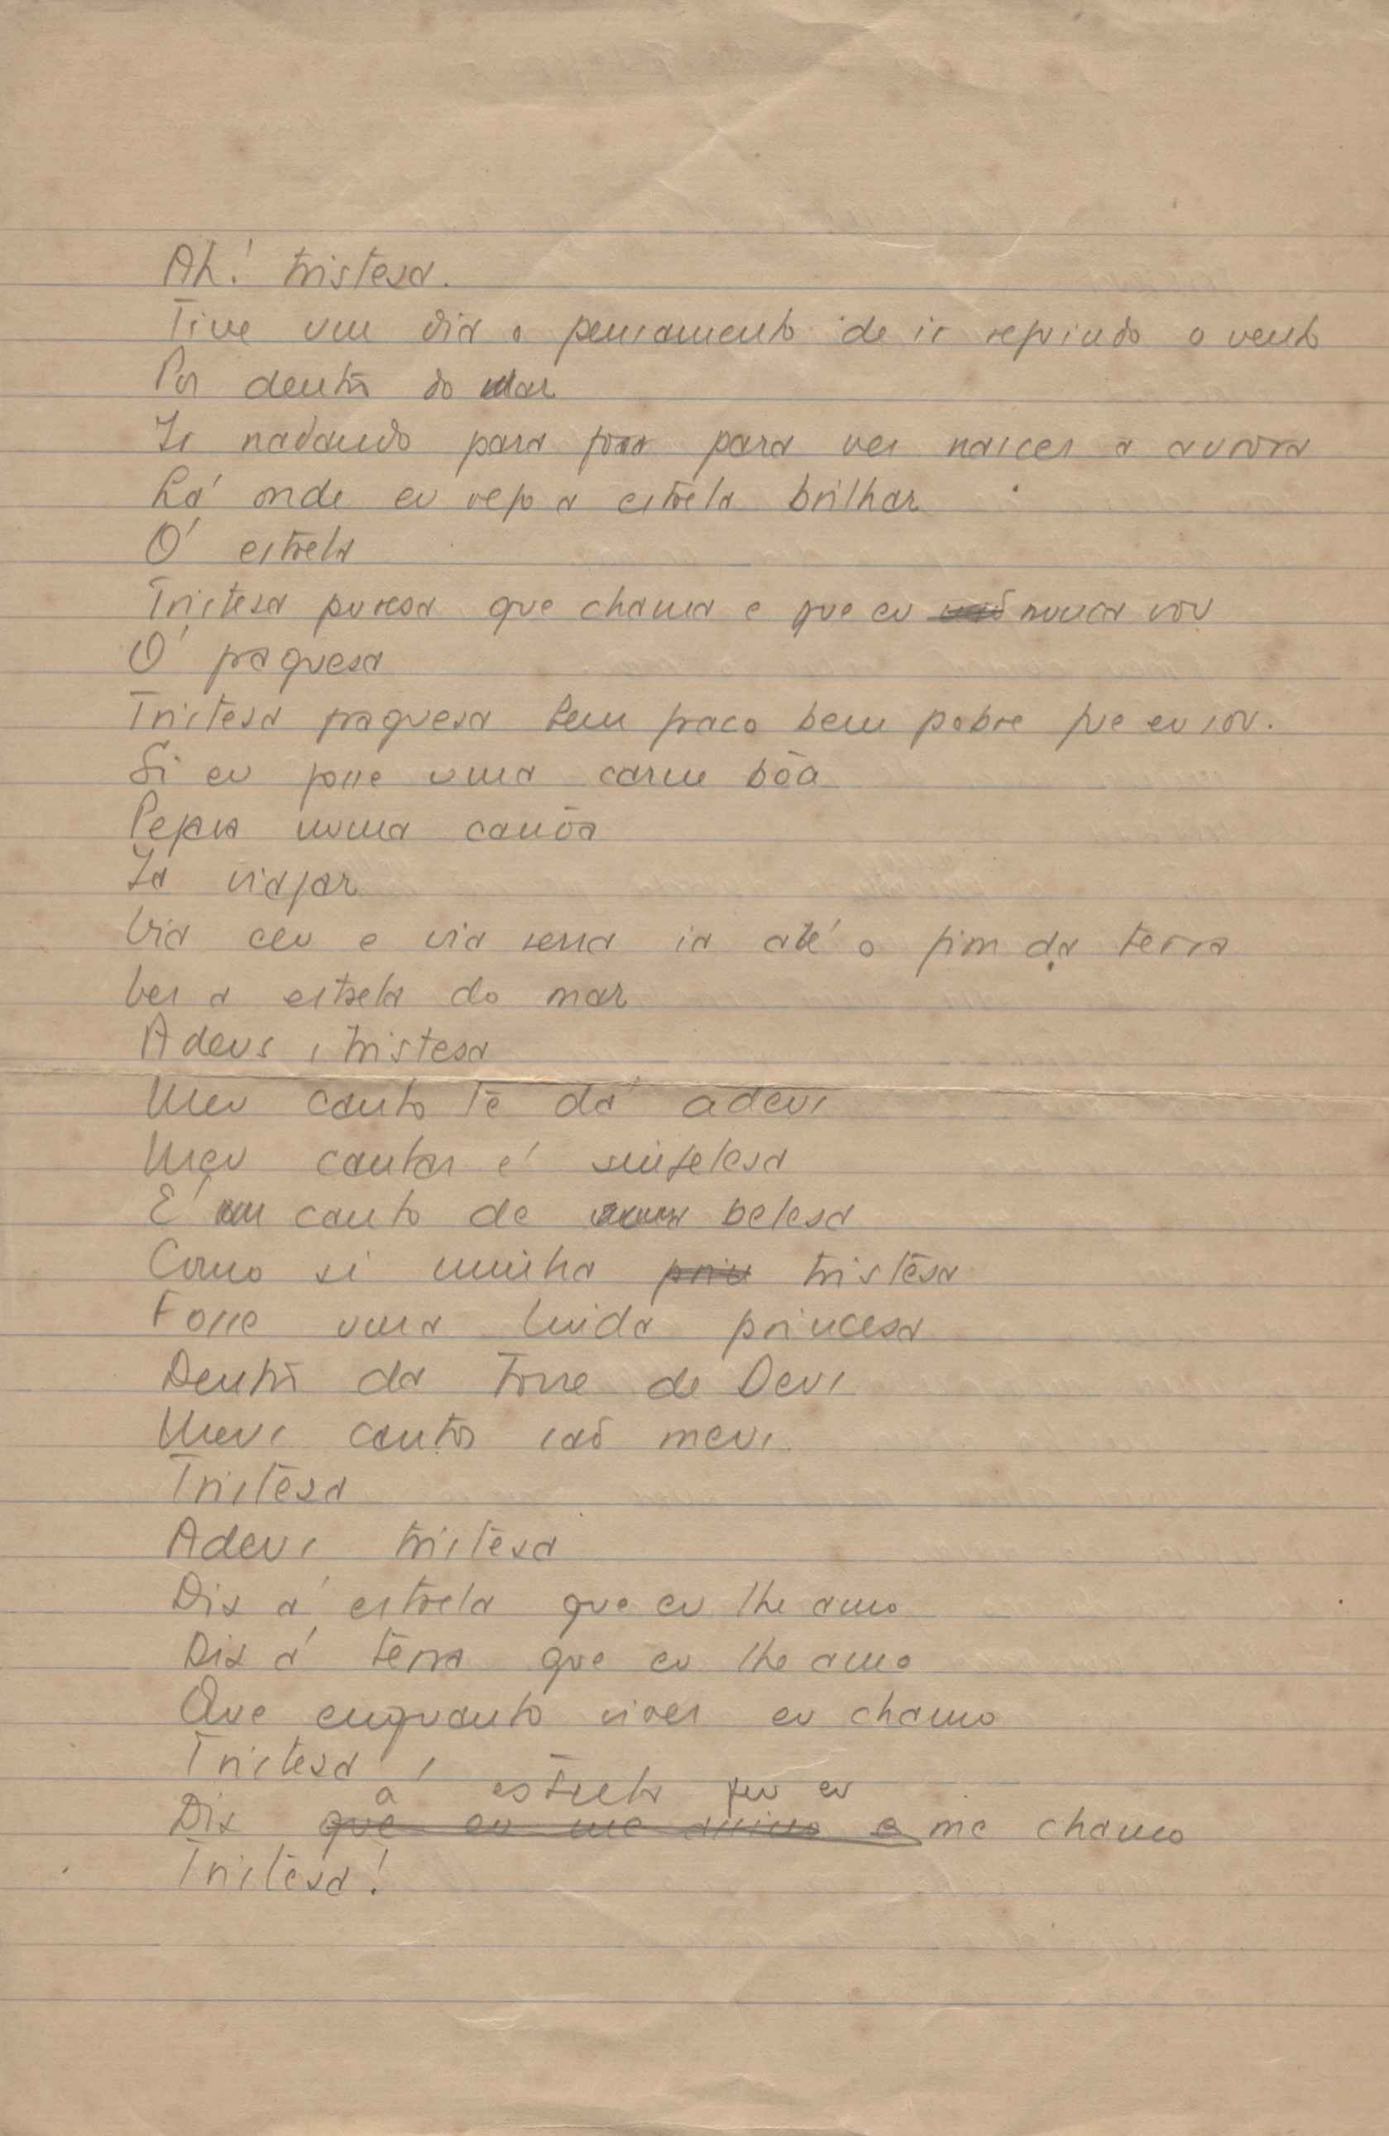 Ah! tristesa.
Tive um dia o pensamento de ir seguindo o vento
Por dentro do mar
Ir nadando para fora para ver nascer a aurora
Lá onde eu vejo a estrêla brilhar
Ó estrela
Tristesa puresa que chama e que eu não nunca vou
Ó fraquesa
Tristesa fraquesa bem fraco bem pobre que eu sou.
Si eu fosse uma carne bôa
Pegava numa canôa
Ia viajar
Via ceu e via serra ia até o fim da terra
Ver a estrela do mar
Adeus, tristesa
Meu canto te dá adeus
Meu cantar é singelesa
É um canto de belesa
Como si minha prin tristêsa
Fosse uma linda princesa
Dentro da Torre de Deus
Meus cantos são meus
Tristêsa
Adeus tristêsa
Dis á estrela que eu lhe amo
Dis á têrra que eu lhe amo
Que enquanto viver eu chamo
Tristesa!
á estrela que eu
Dis que eu me animo e me chamo
Tristêsa!